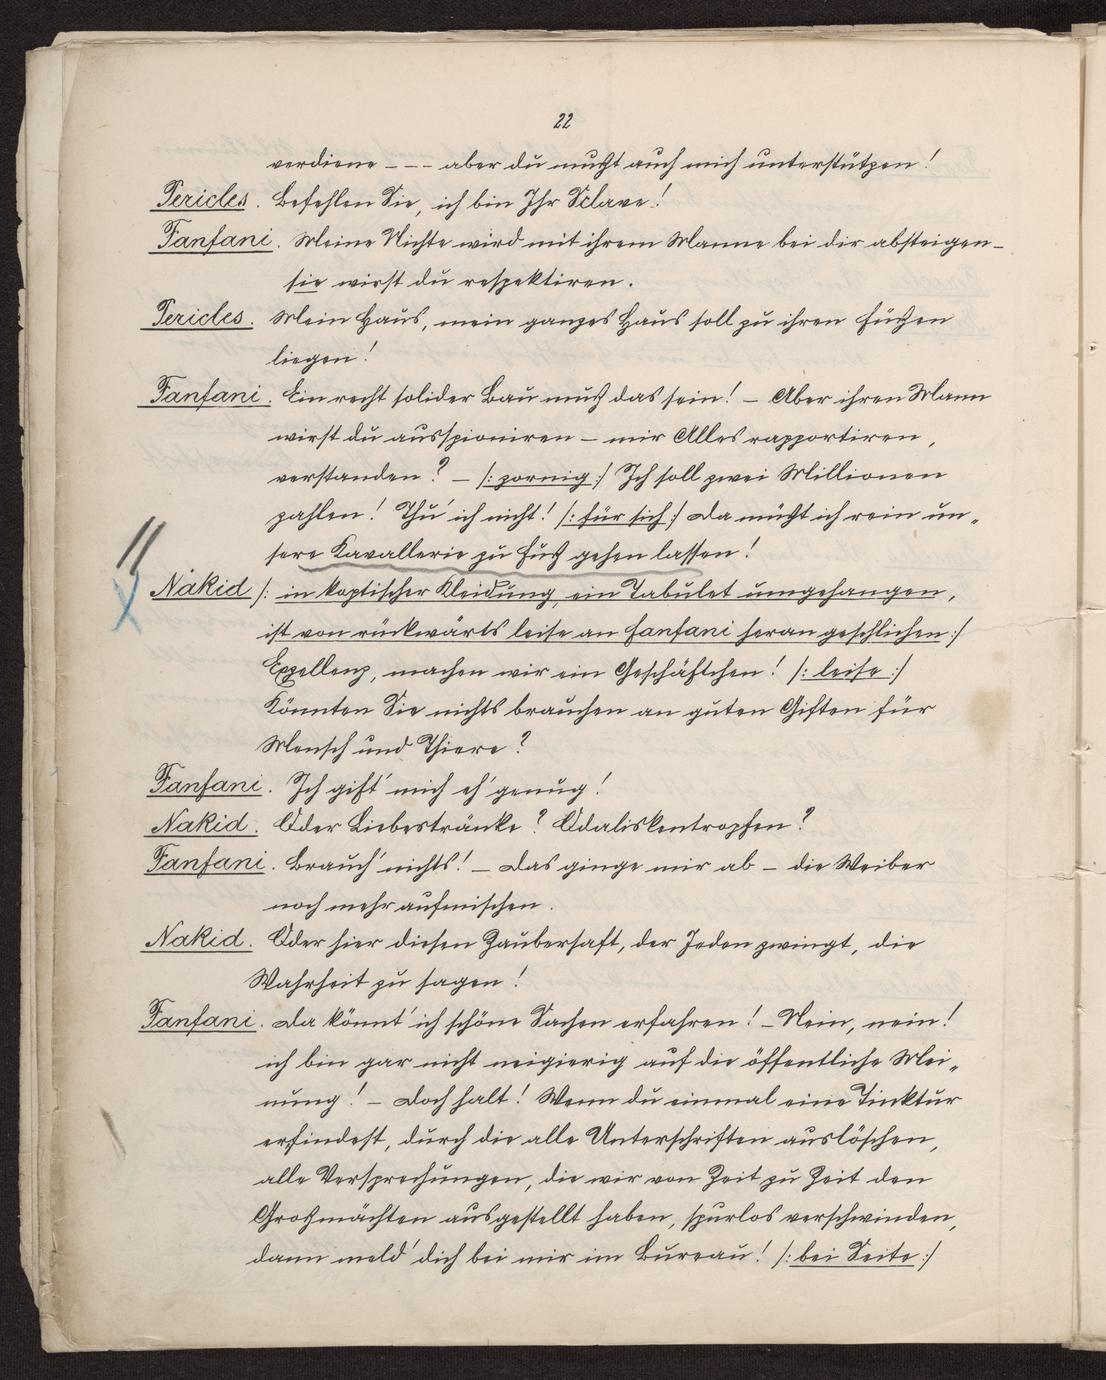 22
verdiene – – – aber du mußt auch mich unterstützen!
Pericles. Befehlen Sie, ich bin Ihr Sclave!
Fanfani. Meine Nichte wird mit ihrem Manne bei dir absteigen –
sie wirst du respektiren.
Pericles. Mein Haus, mein ganzes Haus soll zu ihren Füßen
liegen!
Fanfani. Ein recht solider Bau muß das sein! – Aber ihren Mann
wirst du ausspioniren – mir Alles rapportiren,
verstanden? – /: zornig :/ Ich soll zwei Millionen
zahlen! Thu' ich nicht! /: für sich :/ Da müßt ich rein un-
sere Kavallerie zu Fuß gehen lassen!
Nakid /: in koptischer Kleidung, ein Tabulet umgehangen,
ist von rückwärts leise an Fanfani heran geschlichen :/
Exzellenz, machen wir ein Geschäftchen! /: leise :/
Könnten Sie nichts brauchen an guten Giften für
Mensch und Thiere?
Fanfani. Ich gift' mich eh' genug!
Nakid. Oder Liebestränke? Odaliskentropfen?
Fanfani. Brauch' nichts! – Das ginge mir ab – die Weiber
noch mehr aufmischen.
Nakid. Oder hier diesen Zaubersaft, der Jeden zwingt, die
Wahrheit zu sagen!
Fanfani. Da könnt' ich schöne Sachen erfahren! – Nein, nein!
ich bin gar nicht neigierig auf die öffentliche Mei-
nung! – Doch halt! Wenn du einmal eine Tinktur
erfindest, durch die alle Unterschriften auslöschen,
alle Versprechungen, die wir von Zeit zu Zeit den
Großmächten ausgestellt haben, spurlos verschwinden,
dann meld' dich bei mir im Bureau! /: bei Seite :/